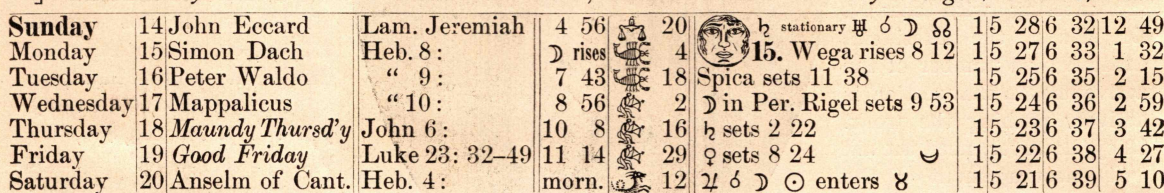 Sunday 14 John Eccard Lam. Jeremiah 4 56 ♎ 20 ♄ stationary ♅ ☌ ☽ ☊ 1 5 28 6 32 12 49
Monday 15 Simon Dach Heb. 8: ☽ rises ♏ 4 15. Wega rises 8 12 1 5 27 6 33 1 32
Tuesday 16 Peter Waldo “ 9: 7 43 ♏ 18 Spica sets 11 38 1 5 25 6 35 2 15
Wednesday 17 Mappalicus “ 10: 8 56 ♐ 2 ☽ in Per. Rigel sets 9 53 1 5 24 6 36 2 59
Thursday 18 Maundy Thursd’y John 6: 10 8 ♐ 16 ♄ sets 2 22 1 5 23 6 37 3 42
Friday 19 Good Friday Luke 23: 32–49 11 14 ♐ 29 ♀ sets 8 24 1 5 22 6 38 4 27
Saturday 20 Anselm of Cant. Heb. 4: morn. ♑ 12 ♃ ☌ ☽ ☉ enters ♉ 1 5 21 6 39 5 10